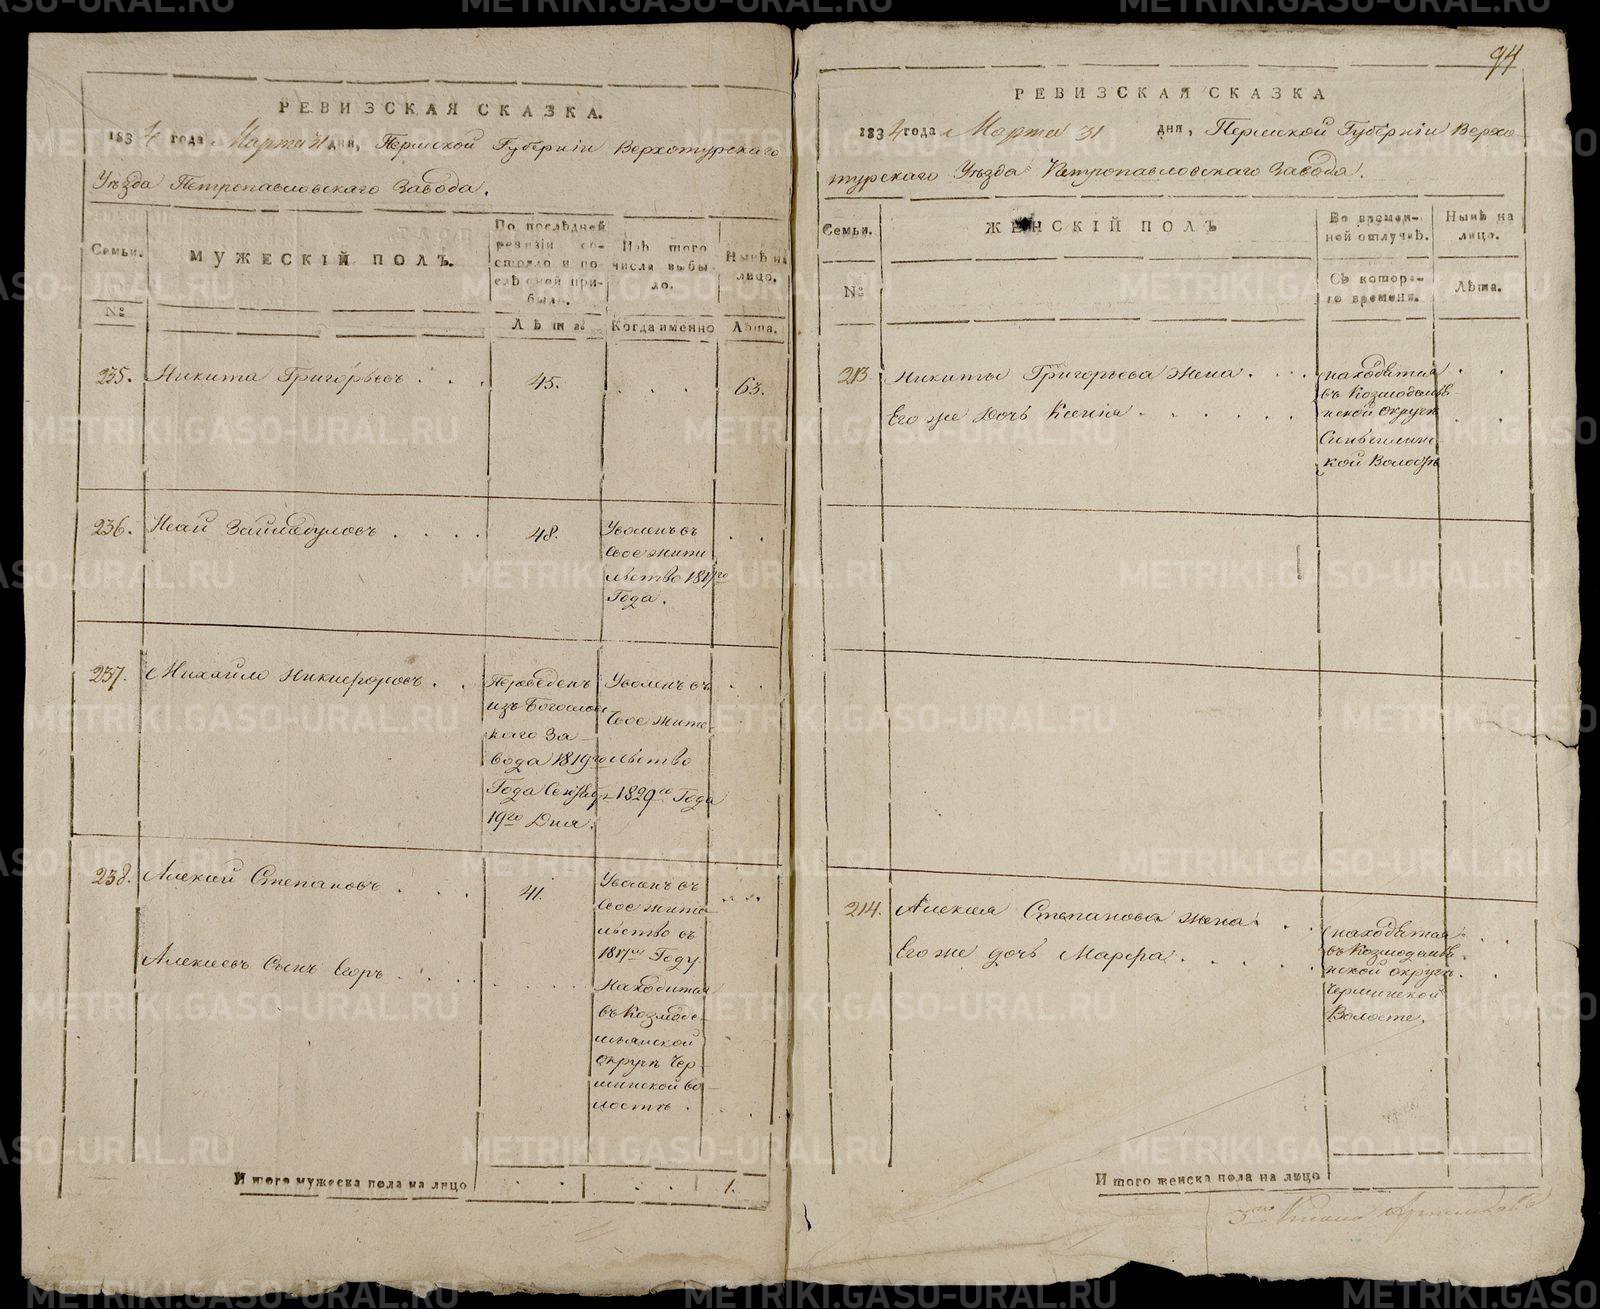 94
РЕВИЗСКАЯ СКАЗКА.
1834 года Марта 31 дня, Пермской Губернiи Верхотурскаго
Уѣзда Петропавловскаго Завода.
Семьи.
№
МУЖЕСКIЙ ПОЛЪ.
По послѣдней
ревизiи со-
стояло и по-
слѣ оной при-
было.
Лѣта.
Изъ того
числа выбы-
ло.
Когда именно
Нынѣ на
лицо.
Лѣта.
235. Никита Григорьевъ . . . 45. . . 63.
236. Исай . . . . 48.
Уволенъ въ
свое жите
льство 1817го
Года.
237. Михайло Никифоровъ . .
Переведенъ
изъ Богослов
скаго За-
вода 1819го
Года Сентяб.
19го Дня.
Уволенъ въ
свое жите
льство
1829го Года
238. Алексей Степановъ . . . 41.
Уволенъ въ
свое жите
льство въ
1817м Году
Алексеевъ Сынъ Егоръ
Находится
въ Козмоде
мьянской
округѣ
во
лостѣ.
И того мужеска пола на лицо . . . . 1.
РЕВИЗСКАЯ СКАЗКА
1834 года Марта 31 дня, Пермской Губернiи Верхо
турскаго Уѣзда Петропавловскаго Завода.
Семьи.
№
ЖЕНСКIЙ ПОЛЪ
Во времен-
ной отлучкѣ.
Съ котора-
го времени.
Нынѣ на
лицо.
Лѣта.
213. Никиты Григорьева Жена . . .
Его же Дочь Ксенiя . . . . . .
находятся
въ Козмодемья-
нской округѣ
кой Волостѣ
214. Алексея Степанова жена . .
Его же дочь Марфа . . . . .
находятся
въ Козмодемья
нской округѣ
Волосте.
И того женска пола на лицо